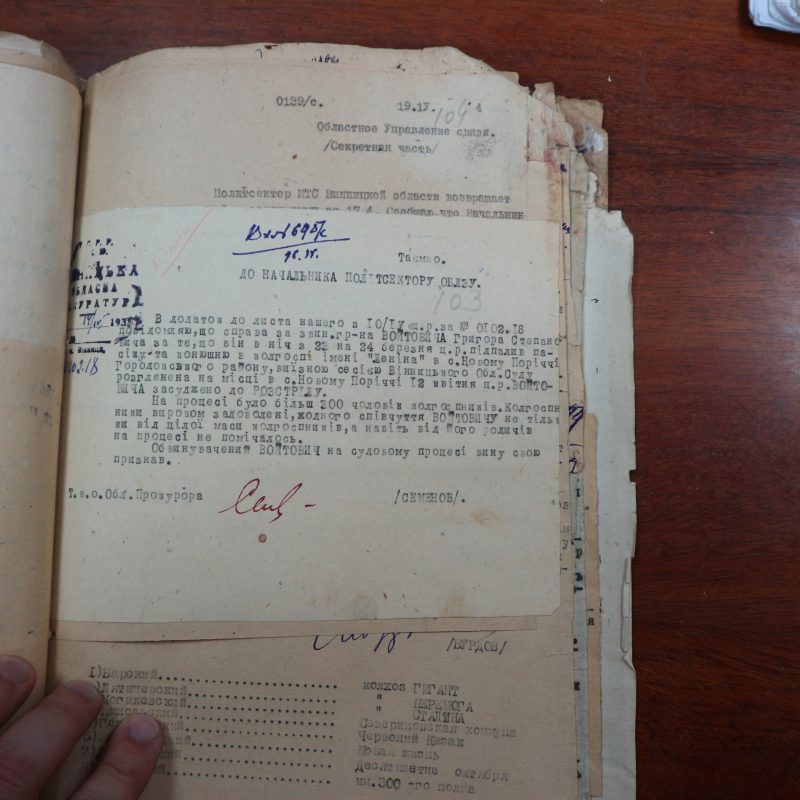 0139/с. 19.ІУ. 4
104
Областное Управление связи.
/Секретная часть/
Политсектор МТС Винницкой области возвращает
17.4. Сообщаю что Начальник
Таємно.
ДО НАЧАЛЬНИКА ПОЛІТСЕКТОРУ ОБЛЗУ.
103
ОБЛАСНА
В додаток до листа нашого з 10/ІУ ц.р.за № 0102.18
повідомляю,що справа за звин.гр-на ВОЙТОВИЧА Григора Степано
вича за те,що він в ніч з 23 на 24 березня ц.р.підпалив па-
сіку та конюшню в колгоспі імені "Леніна" в с.Новому Поріччі
Городовського району,виїзною сесією Вінницького Обл.Суду
розглянена на місці в с.Новому Поріччі 12 квітня ц.р.ВОЙТО-
ВИЧА засуджено до РОЗСТРІЛУ.
На процесі було більш 300 чоловік колгоспників.Колгоспн
ники вироком задоволені,жодного співчуття ВОЙТОВИЧУ не тільк
ки від цілої маси колгоспників,а навіть від його родичів
на процесі не помічалось.
Обвинувачений ВОЙТОВИЧ на судовому процесі вину свою
признав.
Т.в.о.Обл.Прокурора /СЕМЕНОВ/.
/БУРДОВ/
1)Барский.................. колхоз ГИГАНТ
)Лятичевский............... " ПЕРЕМОГА
Могилевский................ " СТАЛИНА
Севериновская коммуна
Червоний Казак
Новая жизнь
Десятилетие октября
им.300-го полка